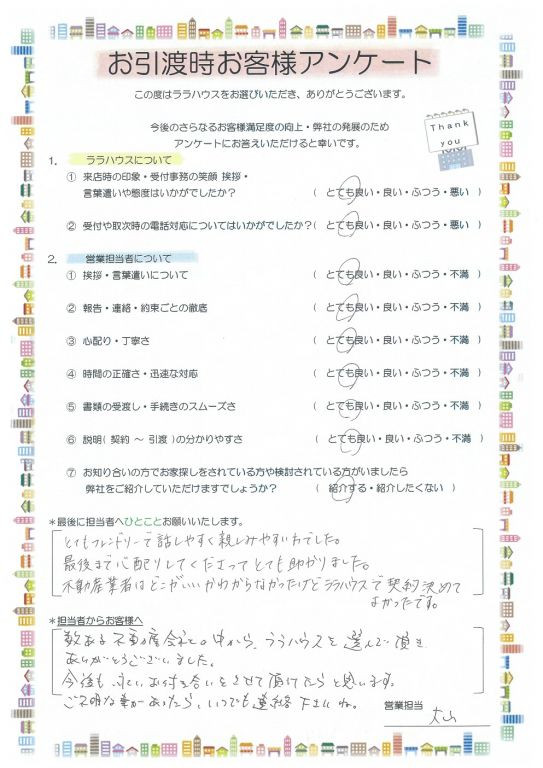 お引渡時お客様アンケート
この度はララハウスをお選びいただき、ありがとうございます。
今後のさらなるお客様満足度の向上・弊社の発展のため
アンケートにお答えいただけると幸いです。
Thank
you
1. ララハウスについて
① 来店時の印象・受付事務の笑顔 挨拶・
言葉遣いや態度はいかがでしたか? ( とても良い・良い・ふつう・悪い )
② 受付や取次時の電話対応についてはいかがでしたか?( とても良い・良い・ふつう・悪い )
2. 営業担当者について
① 挨拶・言葉遣いについて ( とても良い・良い・ふつう・不満 )
② 報告・連絡・約束ごとの徹底 ( とても良い・良い・ふつう・不満 )
③ 心配り・丁寧さ ( とても良い・良い・ふつう・不満 )
④ 時間の正確さ・迅速な対応 ( とても良い・良い・ふつう・不満 )
⑤ 書類の受渡し・手続きのスムーズさ ( とても良い・良い・ふつう・不満 )
⑥ 説明( 契約 ~ 引渡 )の分かりやすさ ( とても良い・良い・ふつう・不満 )
⑦ お知り合いの方でお家探しをされている方や検討されている方がいましたら
弊社をご紹介していただけますでしょうか? ( 紹介する・紹介したくない )
*最後に担当者へひとことお願いいたします。
とてもフレンドリーで話しやすく親しみやすい方でした。
最後まで心配りしてくださってとても助かりました。
不動産業者はどこがいいかわからなかったけどララハウスで契約決めて
よかったです。
*担当者からお客様へ
数ある不動産会社の中から、ララハウスを選んで頂き
ありがとうございました。
今後も、永いお付き合いをさせて頂けたらと思います。
ご不明な事があったら、いつでも連絡下さいね。
営業担当 大山